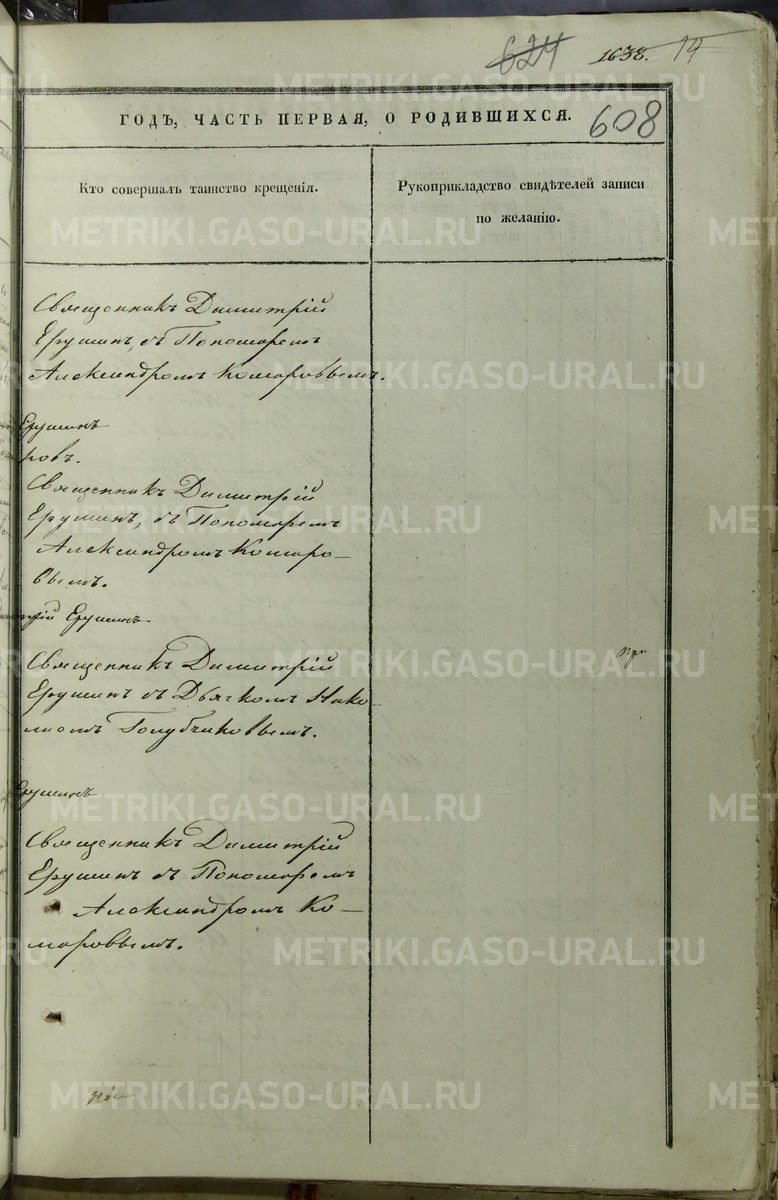 624 1638. 19
ГОДЪ, ЧАСТЬ ПЕРВАЯ, О РОДИВШИХСЯ.
608
Кто совершалъ таинство крещенія.
Рукоприкладство свидѣтелей записи
по желанію.
Священникъ Димитрій
Ерушинъ, съ Пономаремъ
Александромъ Комаровымъ.
Ерушинъ
ровъ.
Священникъ Димитрій
Ерушинъ, съ Пономаремъ
Александромъ Комаро-
вымъ.
трій Ерушинъ.
Священникъ Димитрій
Ерушинъ съ Дьячкомъ Нико-
лаемъ Голубчиковымъ.
при
Ерушинъ
Священникъ Димитрій
Ерушинъ съ Пономаремъ
Александромъ Ко-
маровымъ.
METRIKI.GASO-URAL.RU